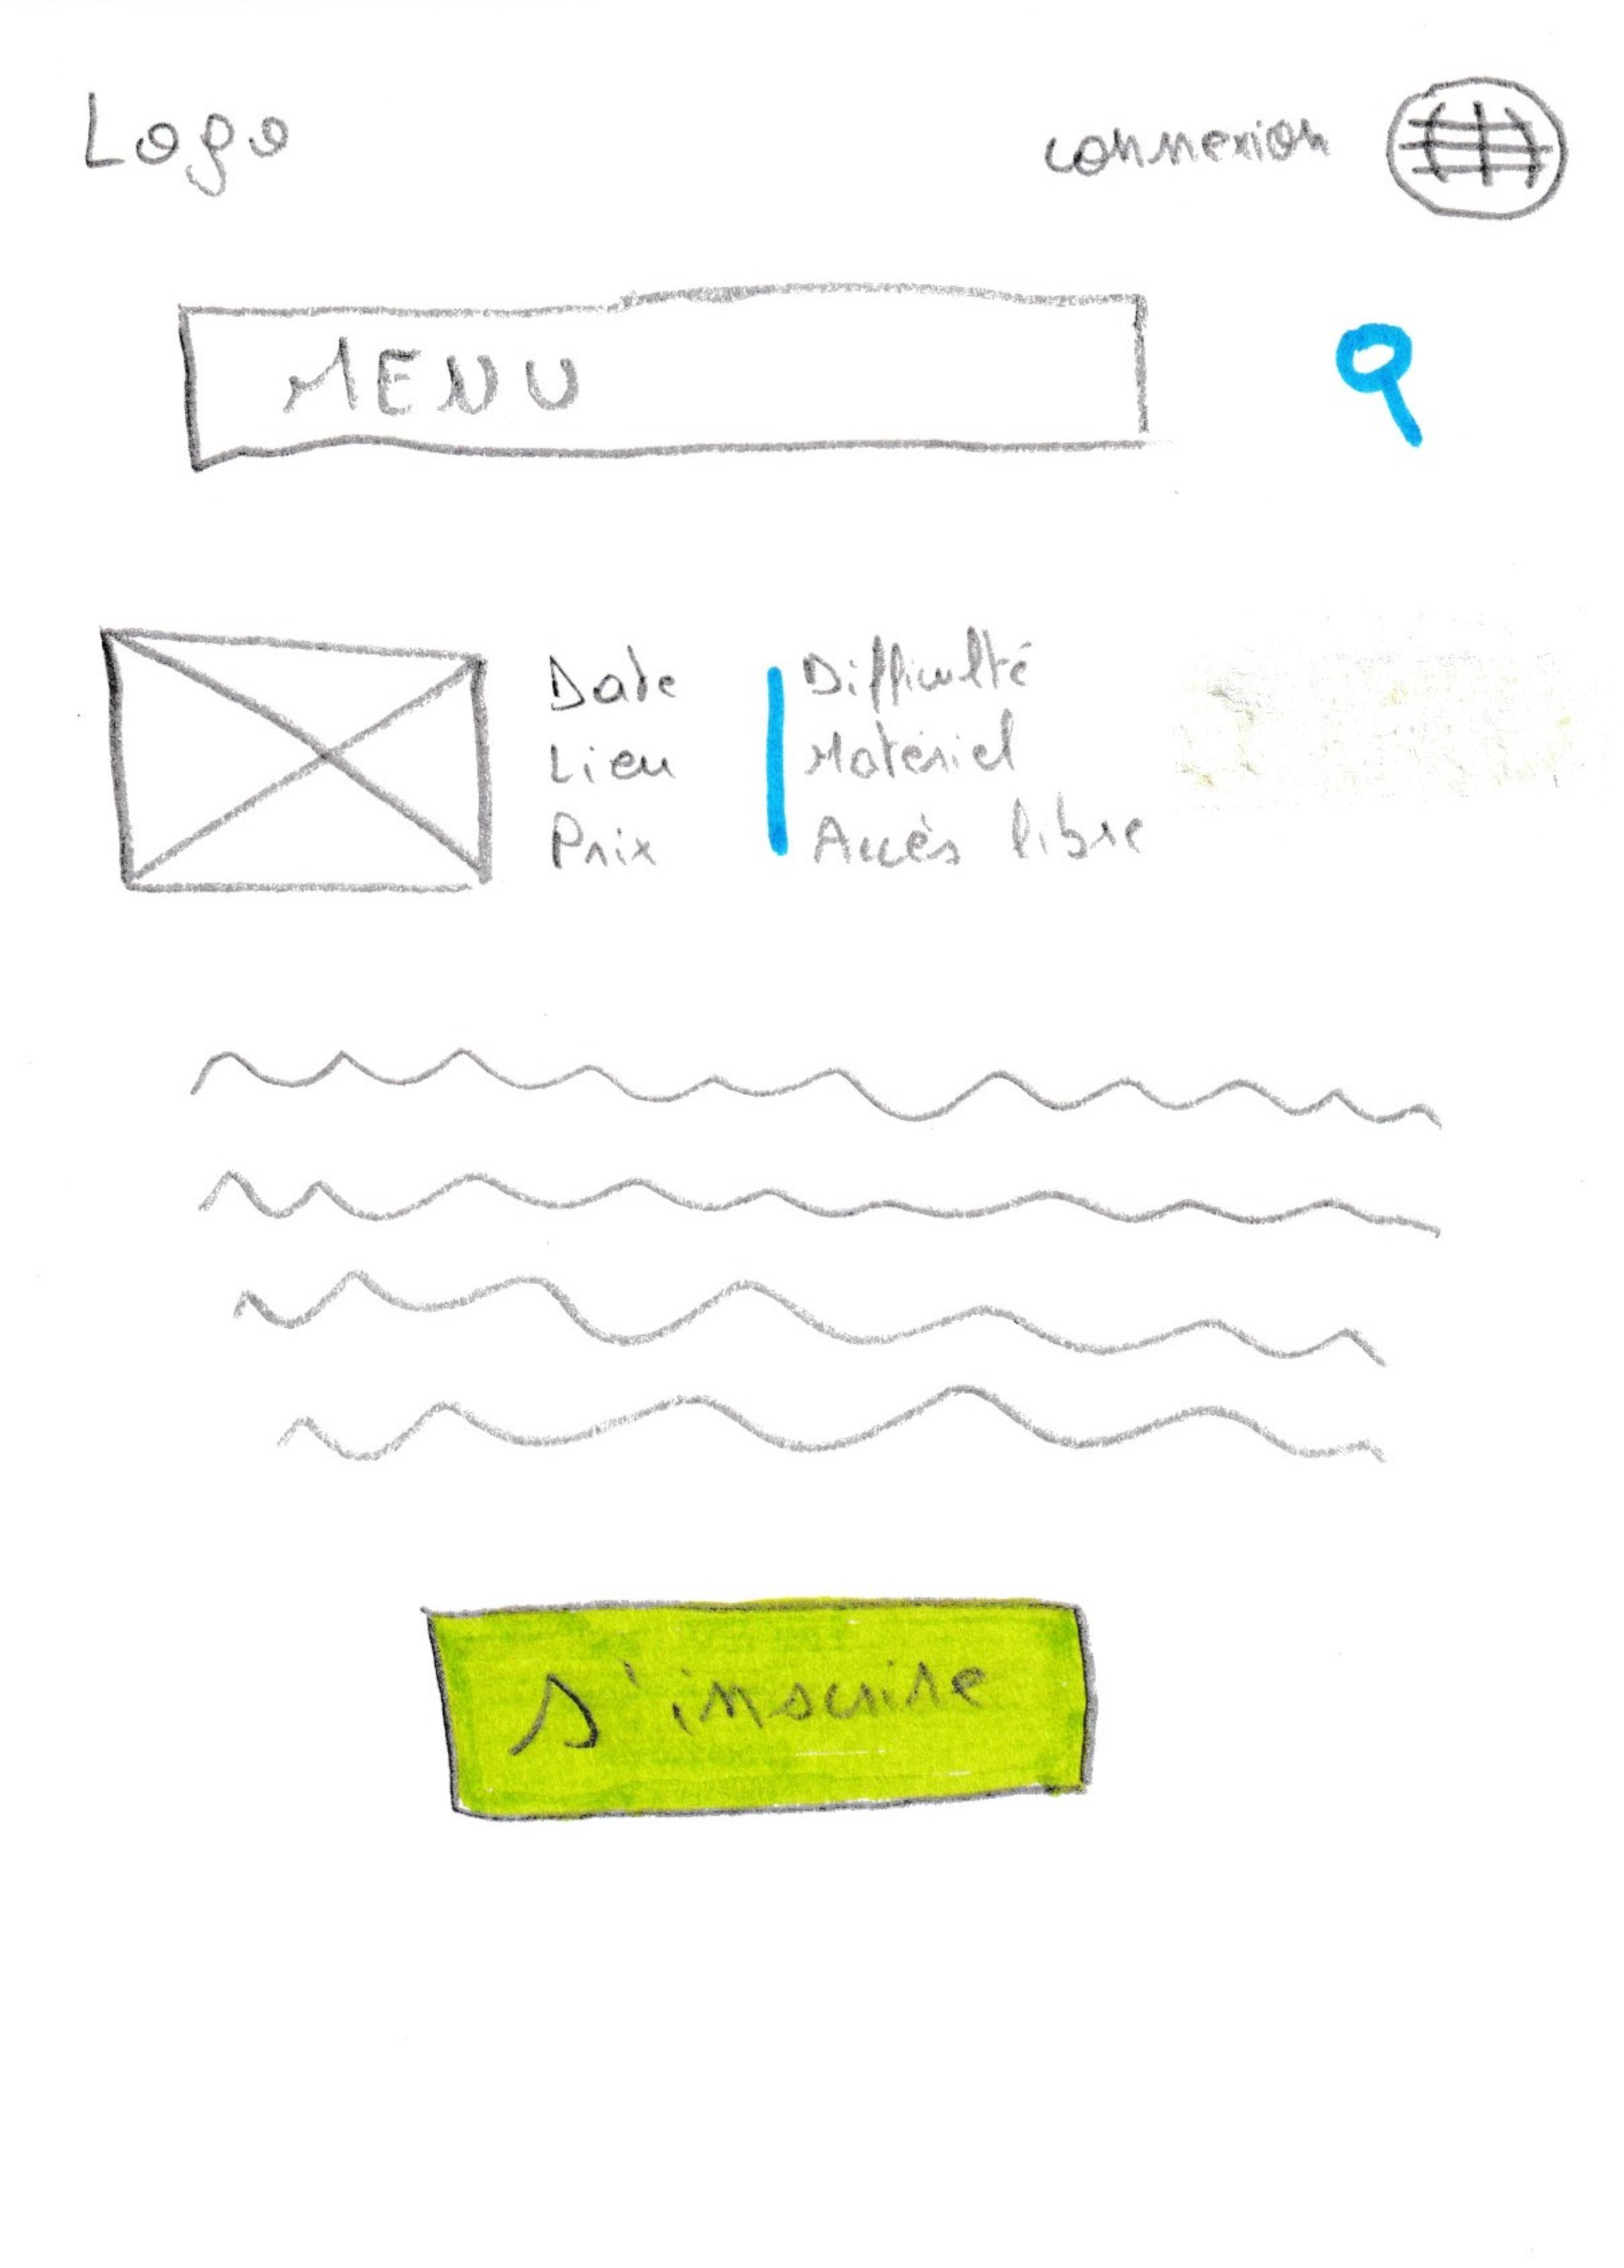 Logo
connexion
MENU
Date
Lieu
Prix
Difficulté
Matériel
Accès libre
S'inscrire